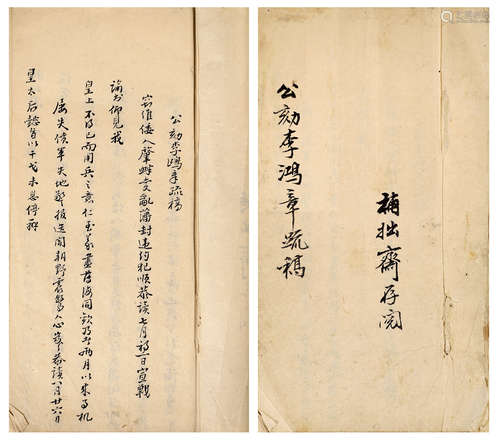 補拙齋存閱
公劾李鴻章疏稿
公劾李鴻章疏稿
竊維倭人肇衅变亂藩封違約犯順恭讀七月初一日宣戰
諭旨仰見我
皇上不得已而用兵之意仁至義盡薄海同欽乃者兩月以來事机
屡失僨軍失地警报迭聞朝野震驚人心岌岌恭讀八月廿六日
皇太后懿旨以干戈未息停辦